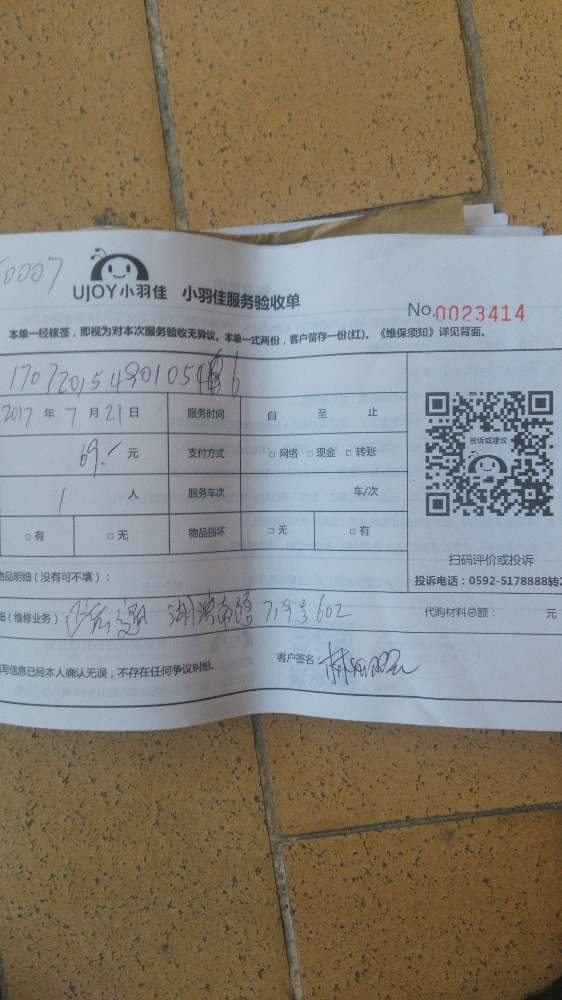 0007
UJOY小羽佳 小羽佳服务验收单
No.0023414
本单一经核签，即视为对本次服务验收无异议。本单一式两份，客户留存一份(红)。《维保须知》详见背面。
2017 年 7 月 21 日 服务时间 自 至 止
69.- 元 支付方式 □ 网络 □ 现金 □ 转账
1 人 服务车次 车/次
□ 有 □ 无 物品损坏 □ 无 □ 有
投诉或建议
扫码评价或投诉
投诉电话：0592-5178888转2
物品明细（没有可不填）：
（维修业务） 湖滨南路 719号602 代购材料总额： 元
写信息已经本人确认无误，不存在任何争议纠纷。 客户签名：